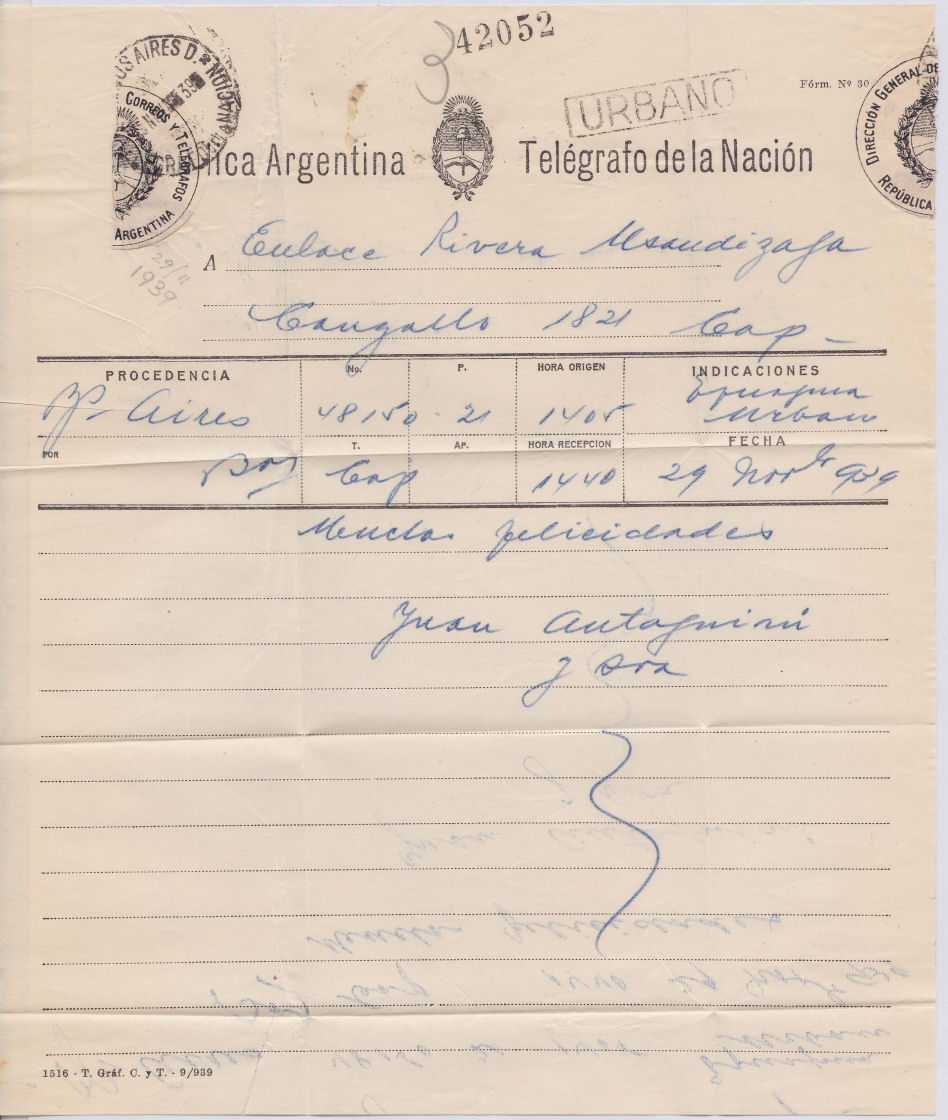 42052
3
URBANO
Fórm. Nº 30
OS AIRES D.
NACION
39
CORREOS Y TELÉGRAFOS
ARGENTINA
DIRECCIÓN GENERAL DE
REPÚBLICA
lica Argentina Telégrafo de la Nación
29/11
1939
A Enlace Rivera Usandizaga
Cangallo 1821 Cap
PROCEDENCIA No. P. HORA ORIGEN INDICACIONES
Bs Aires 48150 21 1405 Urbano
POR T. AP. HORA RECEPCION FECHA
Cap 1440 29 Novbr 939
Muchas felicidades
Juan Antognini
y Sra
1516 - T. Gráf. C. y T. - 9/939